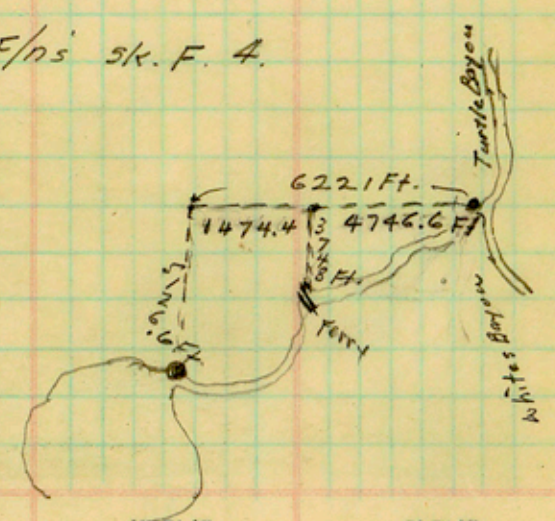 F/ns' sk. F. 4.
Turtle Bayou
6221 Ft.
1474.4
4746.6 Ft
Ft.
Ferry
Whites Bayou